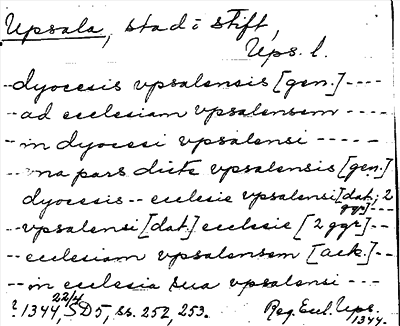 Upsala, stad i stift,
Ups. l.
-- dyocesis vpsalensis [gen.] ----
-- ad ecclesiam vpsalensem ----
-- in dyocesi vpsalensi -----
-- na pars dicte vpsalensis [gen.]
dyocesis -- ecclesie vpsalensi [dat.; 2 ggr] ---
-- vpsalensi [dat.] ecclesie [2 ggr] --
-- ecclesiam vpsalensem [ack.] --
-- in ecclesia sua vpsalensi ---
? 1344 22/4, SD 5, ss. 252, 253. Reg. Eccl. Ups. 1344.